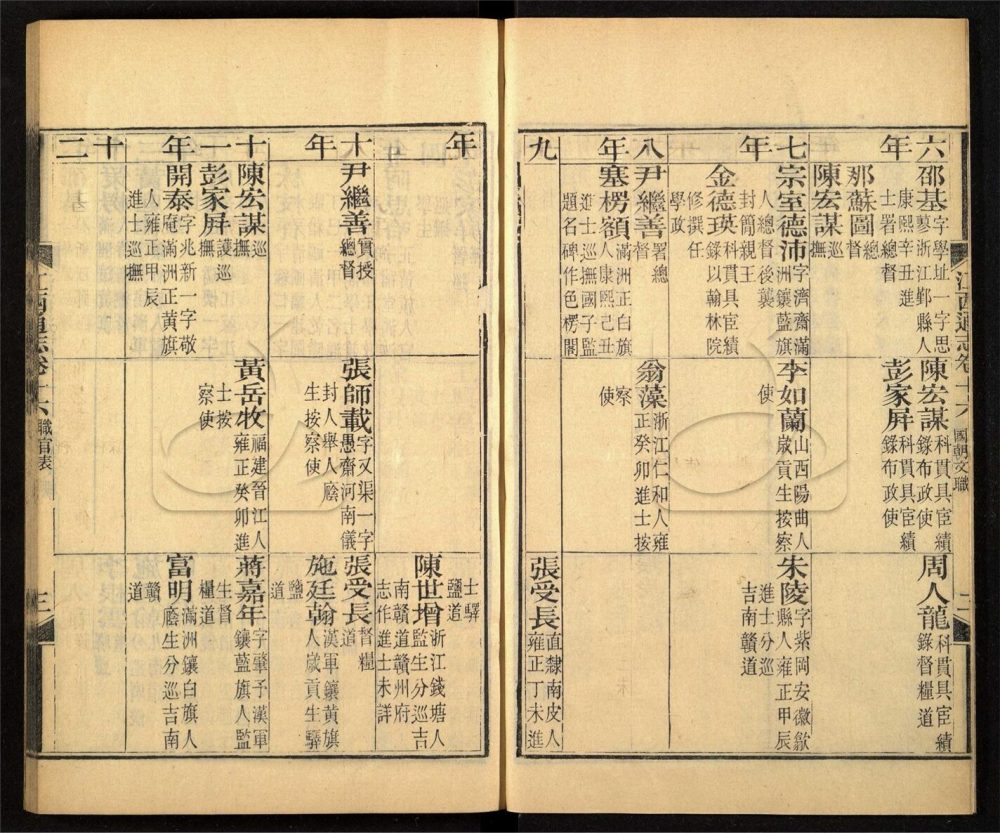 江西通志卷十六 國朝文職 二
六年
邵基 字學址一字思蓼浙江鄞縣人康熙辛丑進士署總督
那蘇圖 總督
陳宏謀 巡撫
陳宏謀 科貫具宦績錄布政使
彭家屏 科貫具宦績錄布政使
周人龍 科貫具宦績錄督糧道
七年
宗室德沛 字濟齋滿洲鑲藍旗人總督後襲封簡親王
金德瑛 科貫具宦績錄以翰林院修撰任學政
李如蘭 山西陽曲人歲貢生按察使
朱陵 字紫岡安徽歙縣人雍正甲辰進士分巡吉南贛道
八年
尹繼善 署總督
塞楞額 滿洲正白旗人康熙己丑進士巡撫國子監題名碑作色楞閣
翁藻 浙江仁和人雍正癸卯進士按察使
九
張受長 直隸南皮人雍正丁未進
年
士驛鹽道
陳世增 浙江錢塘人監生分巡吉南贛道贛州府志作進士未詳
十年
尹繼善 實授總督
張師載 字又渠一字愚齋河南儀封人舉人廕生按察使
張受長 督糧道
施廷翰 漢軍鑲黃旗人歲貢生驛鹽道
十一年
陳宏謀 巡撫
彭家屏 護巡撫
開泰 字兆新一字敬庵滿洲正黃旗人雍正甲辰進士巡撫
黃岳牧 福建晉江人雍正癸卯進士按察使
蔣嘉年 字肇予漢軍鑲藍旗人監生督糧道
富明 滿洲鑲白旗人廕生分巡吉南贛道
十二
江西通志卷十六 職官表 三